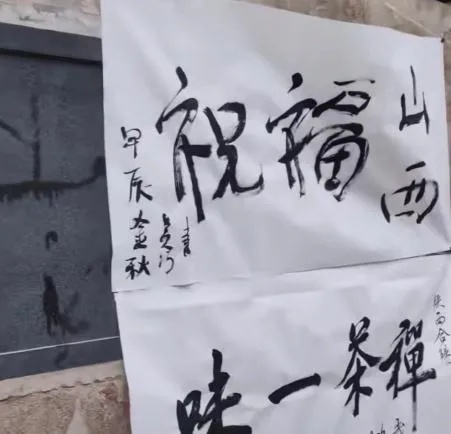 祝福
山西
甲辰金秋
書
禪茶一味